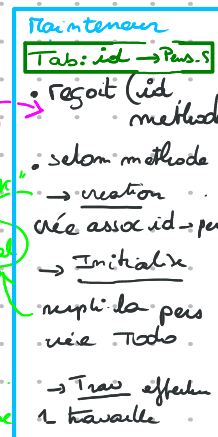 Mainteneur
Tab: id → Pers.S
• reçoit (id
méthod
• selon méthode
→ création
crée assoc id → per
→ Initialise
rempli la pers
crée Todo
→ Trav effectu
1 travaille